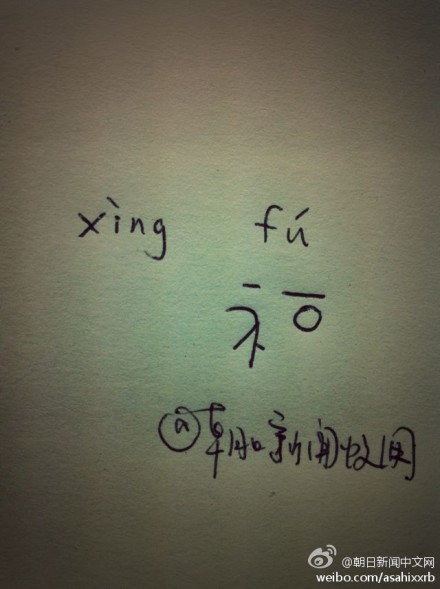 xìng fú
@朝日新闻中文网
@朝日新闻中文网
weibo.com/asahixxrb